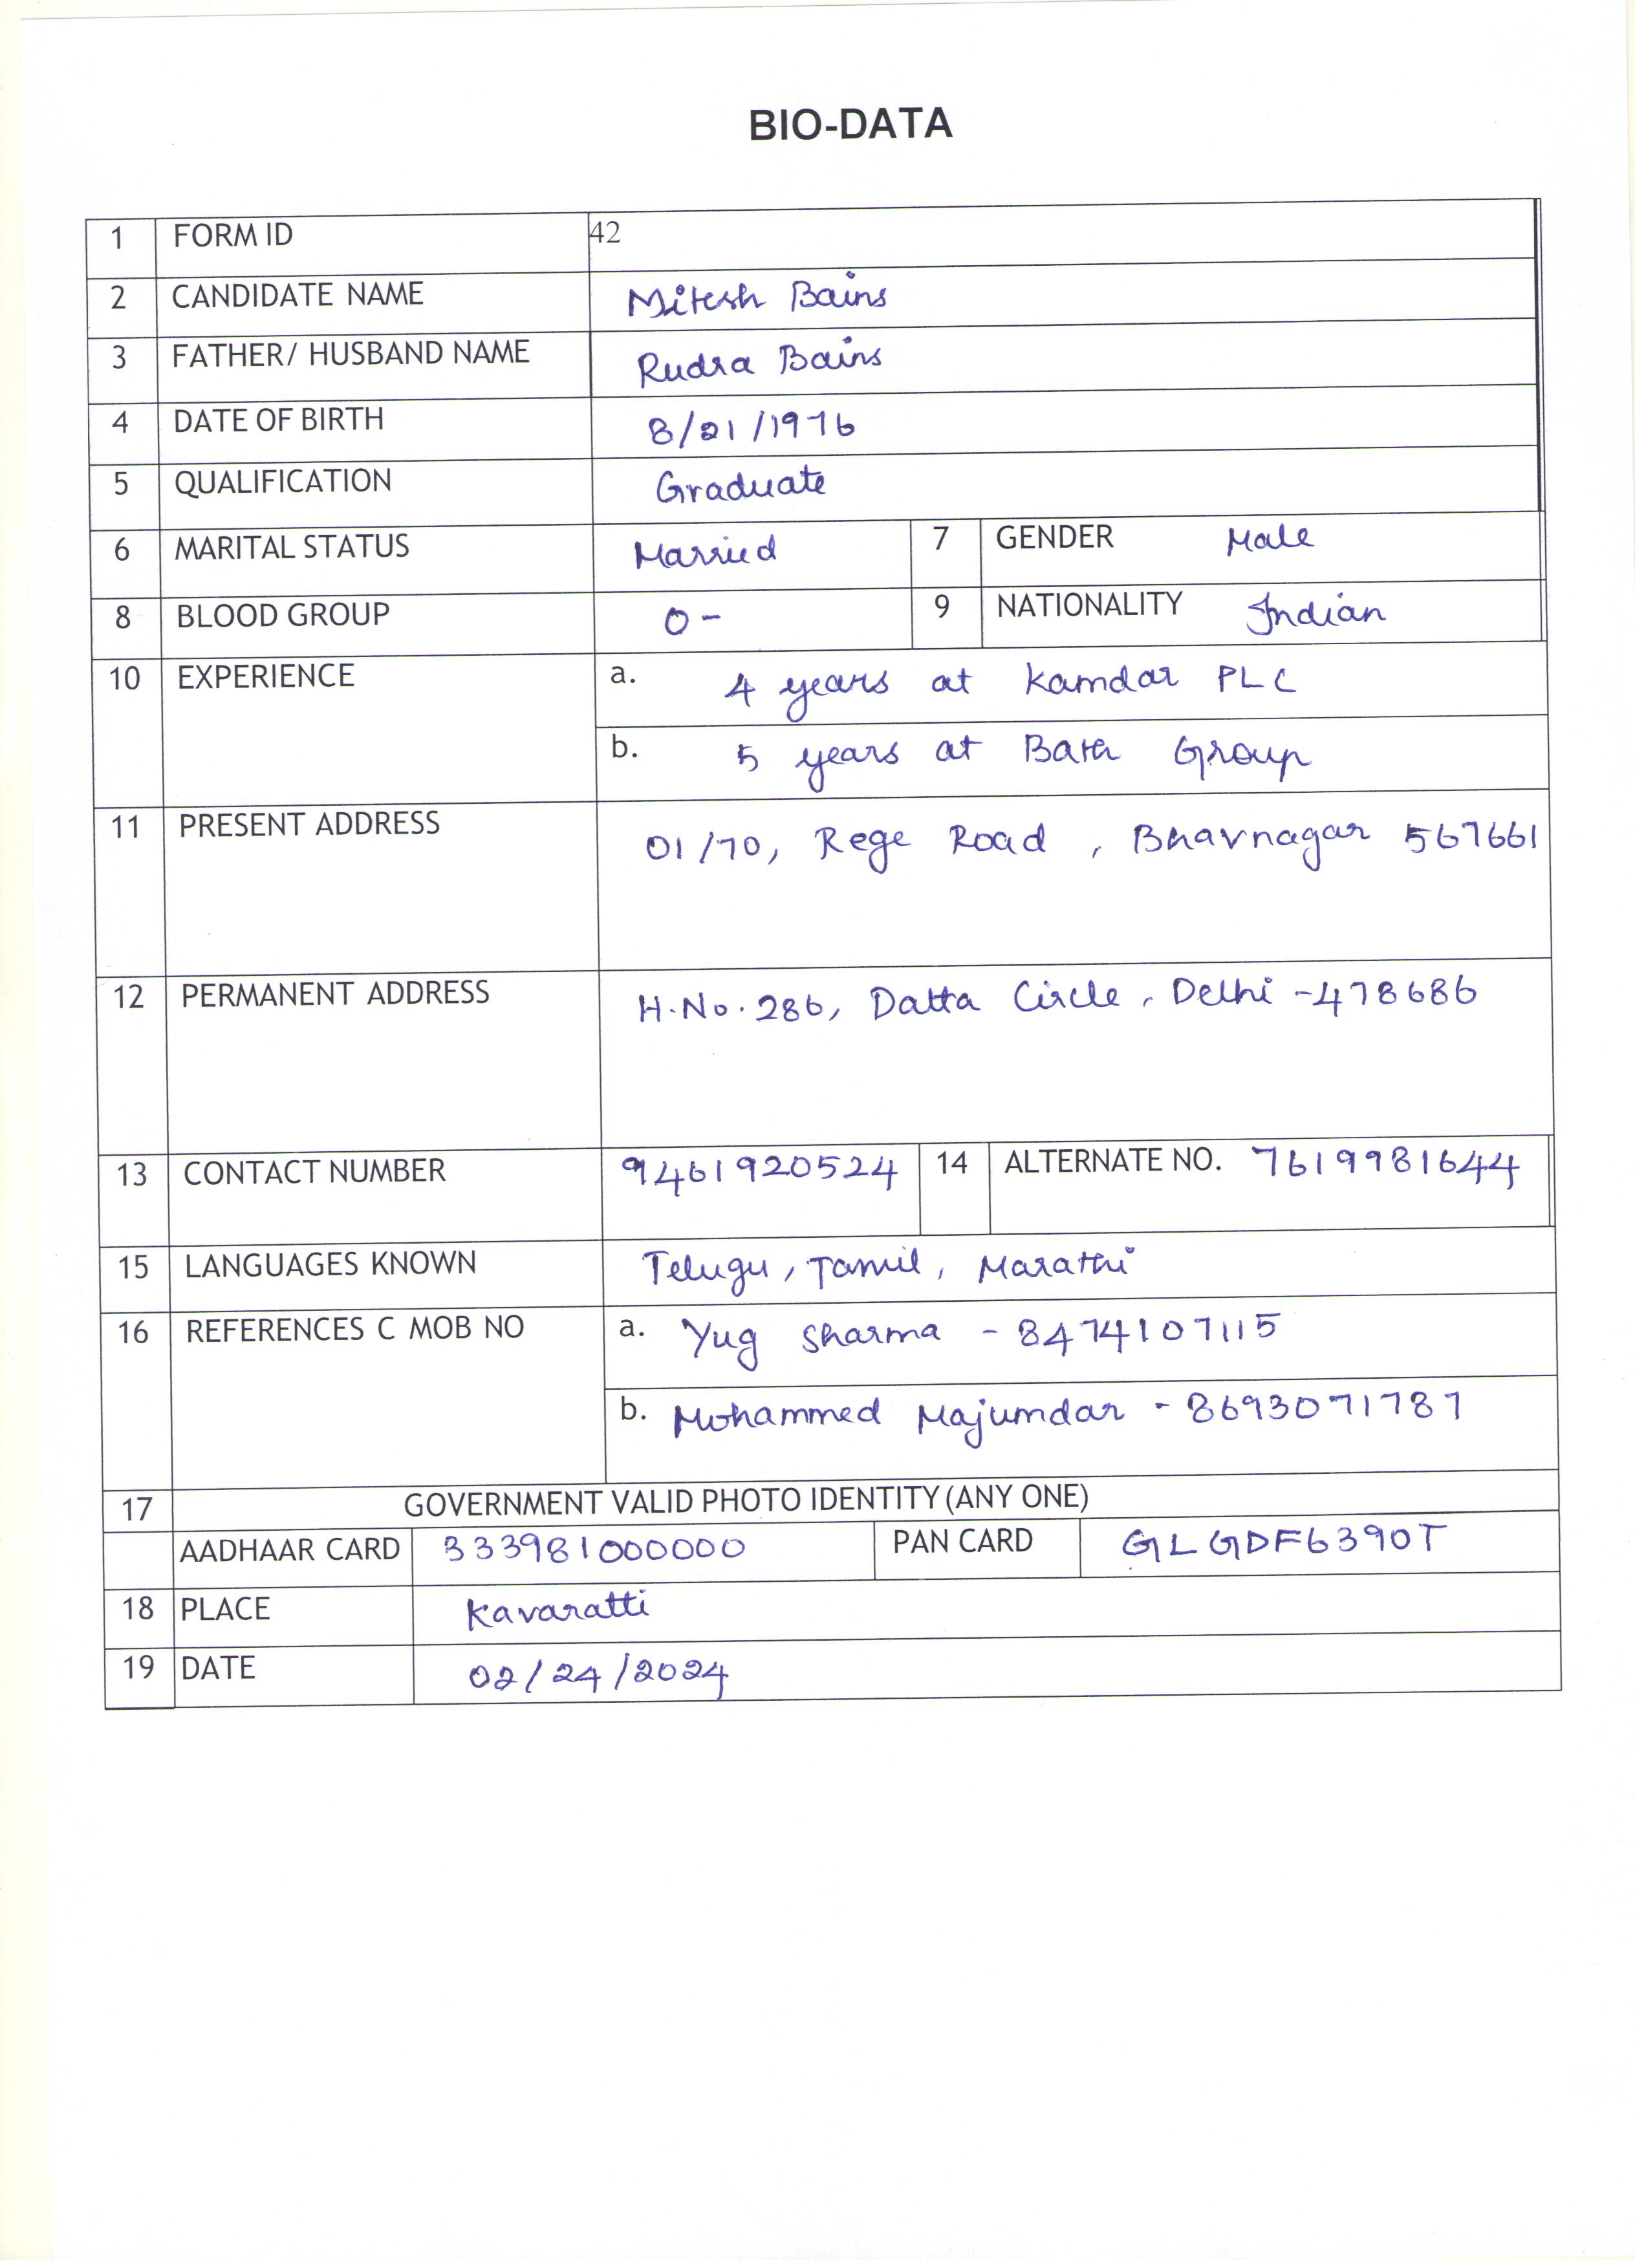 BIO-DATA
1 FORM ID 42
2 CANDIDATE NAME Mitesh Bains
3 FATHER/ HUSBAND NAME Rudra Bains
4 DATE OF BIRTH 8/21/1976
5 QUALIFICATION Graduate
6 MARITAL STATUS Married 7 GENDER Male
8 BLOOD GROUP O- 9 NATIONALITY Indian
10 EXPERIENCE a. 4 years at Kamdar PLC
b. 5 years at Bath Group
11 PRESENT ADDRESS 01/70, Rege Road, Bhavnagar 567661
12 PERMANENT ADDRESS H.No. 286, Datta Circle, Delhi -478686
13 CONTACT NUMBER 9461920524 14 ALTERNATE NO. 7619981644
15 LANGUAGES KNOWN Telugu, Tamil, Marathi
16 REFERENCES C MOB NO a. Yug Sharma - 8474107115
b. Mohammed Majumdar - 8693071787
17 GOVERNMENT VALID PHOTO IDENTITY (ANY ONE)
AADHAAR CARD 333981000000 PAN CARD GLGDF6390T
18 PLACE Kavaratti
19 DATE 02/24/2024